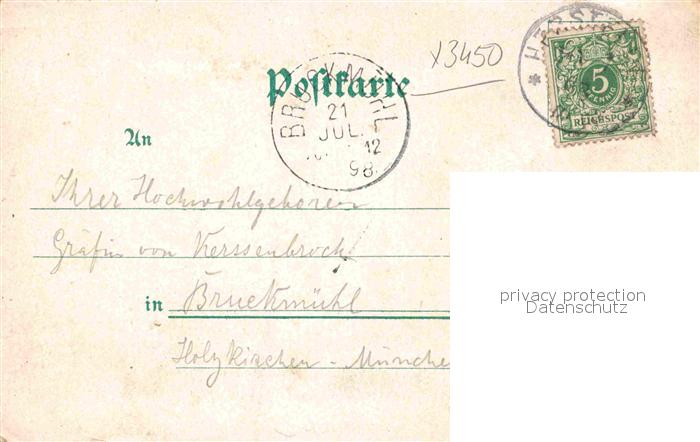 x3450
Postkarte
BRUCKMÜHL
21
JUL.
12
98.
5
PFENNIG
REICHSPOST
An
Ihrer Hochwohlgeboren
Gräfin von Kerssenbrock
in Bruckmühl
Holzkirchen - Münche
privacy protection
Datenschutz